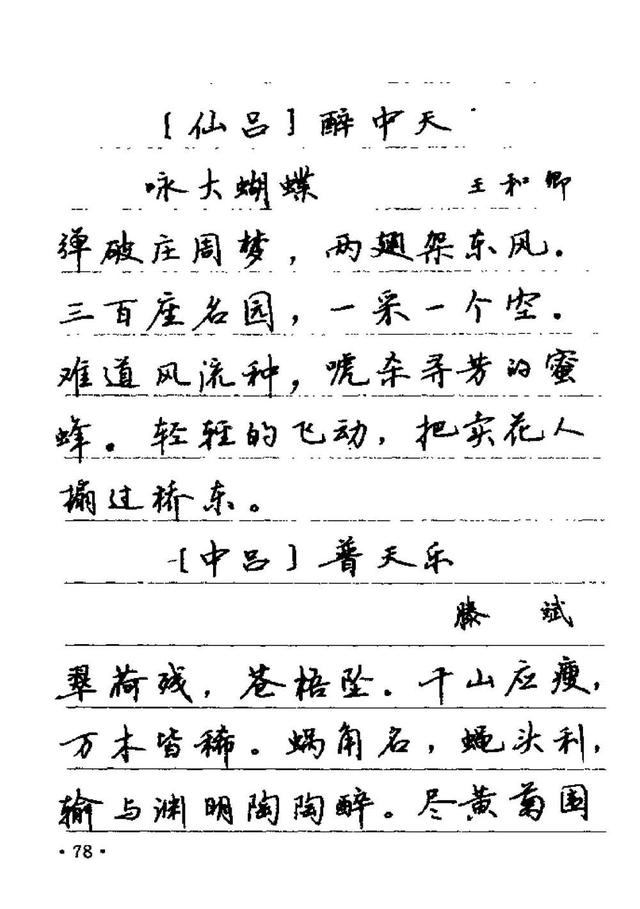 [仙吕]醉中天
咏大蝴蝶 王和卿
弹破庄周梦，两翅架东风。
三百座名园，一采一个空。
难道风流种，唬杀寻芳的蜜
蜂。轻轻的飞动，把卖花人
搧过桥东。
[中吕]普天乐
滕 斌
翠荷残，苍梧坠。千山应瘦，
万木皆稀。蜗角名，蝇头利，
输与渊明陶陶醉。尽黄菊围
·78·